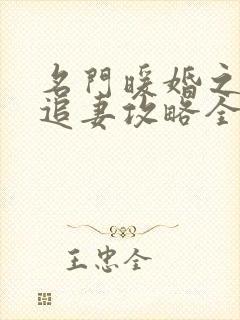 名門暖婚之
追妻攻略全
王忠全